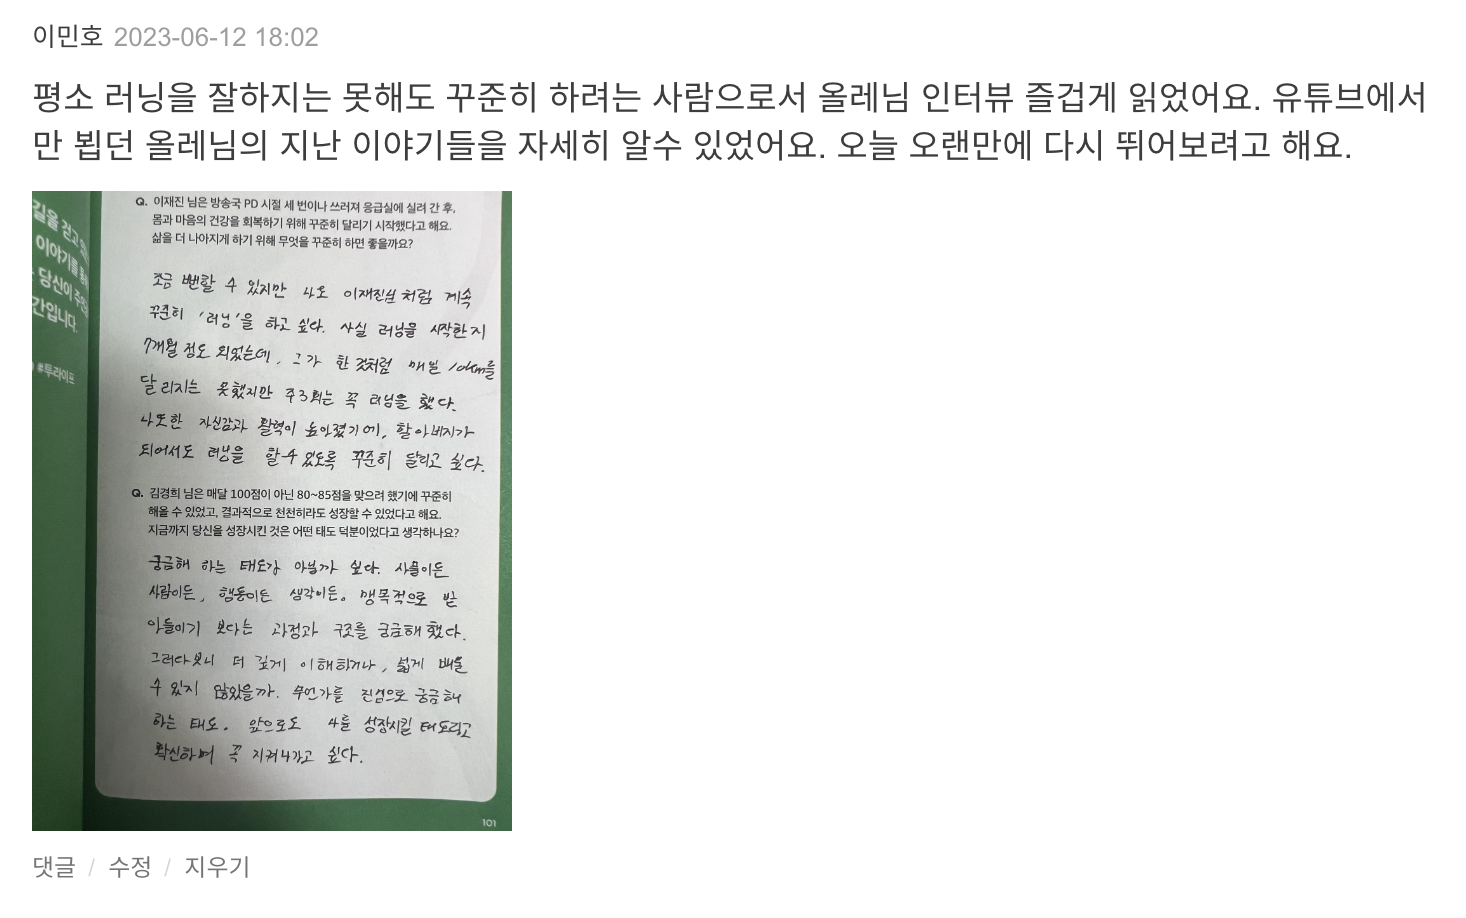 이민호 2023-06-12 18:02
평소 러닝을 잘하지는 못해도 꾸준히 하려는 사람으로서 올레님 인터뷰 즐겁게 읽었어요. 유튜브에서
만 뵙던 올레님의 지난 이야기들을 자세히 알수 있었어요. 오늘 오랜만에 다시 뛰어보려고 해요.
길을 걷고
이야기를
당신이
간입니다.
#투라이프
Q. 이재진 님은 방송국 PD 시절 세 번이나 쓰러져 응급실에 실려 간 후,
몸과 마음의 건강을 회복하기 위해 꾸준히 달리기 시작했다고 해요.
삶을 더 나아지게 하기 위해 무엇을 꾸준히 하면 좋을까요?
조금 뻔할 수 있지만 나도 이재진님처럼 계속
꾸준히 '러닝'을 하고 싶다. 사실 러닝을 시작한지
7개월 정도 되었는데, 그가 한 것처럼 매일 10km를
달리지는 못했지만 주3회는 꼭 러닝을 했다.
나또한 자신감과 활력이 높아졌기에, 할아버지가
되어서도 러닝을 할수 있도록 꾸준히 달리고 싶다.
Q. 김경희 님은 매달 100점이 아닌 80~85점을 맞으려 했기에 꾸준히
해올 수 있었고, 결과적으로 천천히라도 성장할 수 있었다고 해요.
지금까지 당신을 성장시킨 것은 어떤 태도 덕분이었다고 생각하나요?
궁금해 하는 태도가 아닐까 싶다. 사물이든
사람이든, 행동이든 생각이든. 맹목적으로 받
아들이기 보다는 과정과 구조를 궁금해 했다.
그러다보니 더 깊게 이해하거나, 넓게 배울
수 있지 않았을까. 무언가를 진심으로 궁금해
하는 태도. 앞으로도 나를 성장시킬 태도라고
확신하며 꼭 지켜나가고 싶다.
101
댓글 / 수정 / 지우기